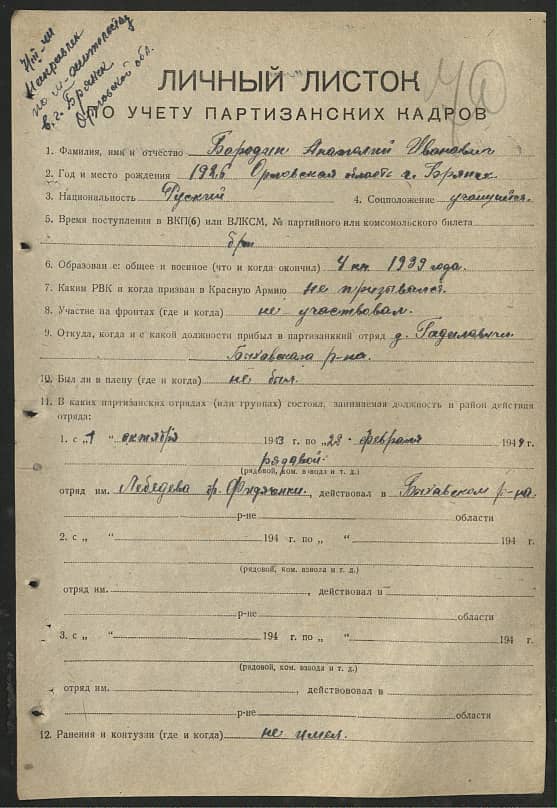 Направлен
по м-жительству
в г. Брянск
Орловской обл.
ЛИЧНЫЙ ЛИСТОК
ПО УЧЕТУ ПАРТИЗАНСКИХ КАДРОВ
1. Фамилия, имя и отчество Бородин Анатолий Иванович
2. Год и место рождения 1926 Орловская область г. Брянск
3. Национальность Руский 4. Соцположение учащийся.
5. Время поступления в ВКП(б) или ВЛКСМ, № партийного или комсомольского билета
б/п
6. Образование: общее и военное (что и когда окончил) 4 кл. 1939 года.
7. Каким РВК и когда призван в Красную Армию не призывался.
8. Участие на фронтах (где и когда) не участвовал.
9. Откуда, когда и с какой должности прибыл в партизанский отряд д.
Быхавского р-на.
10. Был ли в плену (где и когда) не был.
11. В каких партизанских отрядах (или группах) состоял, занимаемая должность и район действия
отряда:
1. с „1" октября 1943 г. по „22" февраля 1944 г.
рядавой.
(рядовой, ком. взвода и т. д.)
отряд им. Лебедева бр. , действовал в Быхавском р-на.
р-не области
2. с „ " 194 г. по „ " 194 г.
(рядовой, ком. взвода и т. д.)
отряд им. , действовал в
р-не области
3. с „ " 194 г. по „ " 194 г.
(рядовой, ком. взвода и т. д.)
отряд им. , действововал в
р-не области
12. Ранения и контузии (где и когда) не имел.